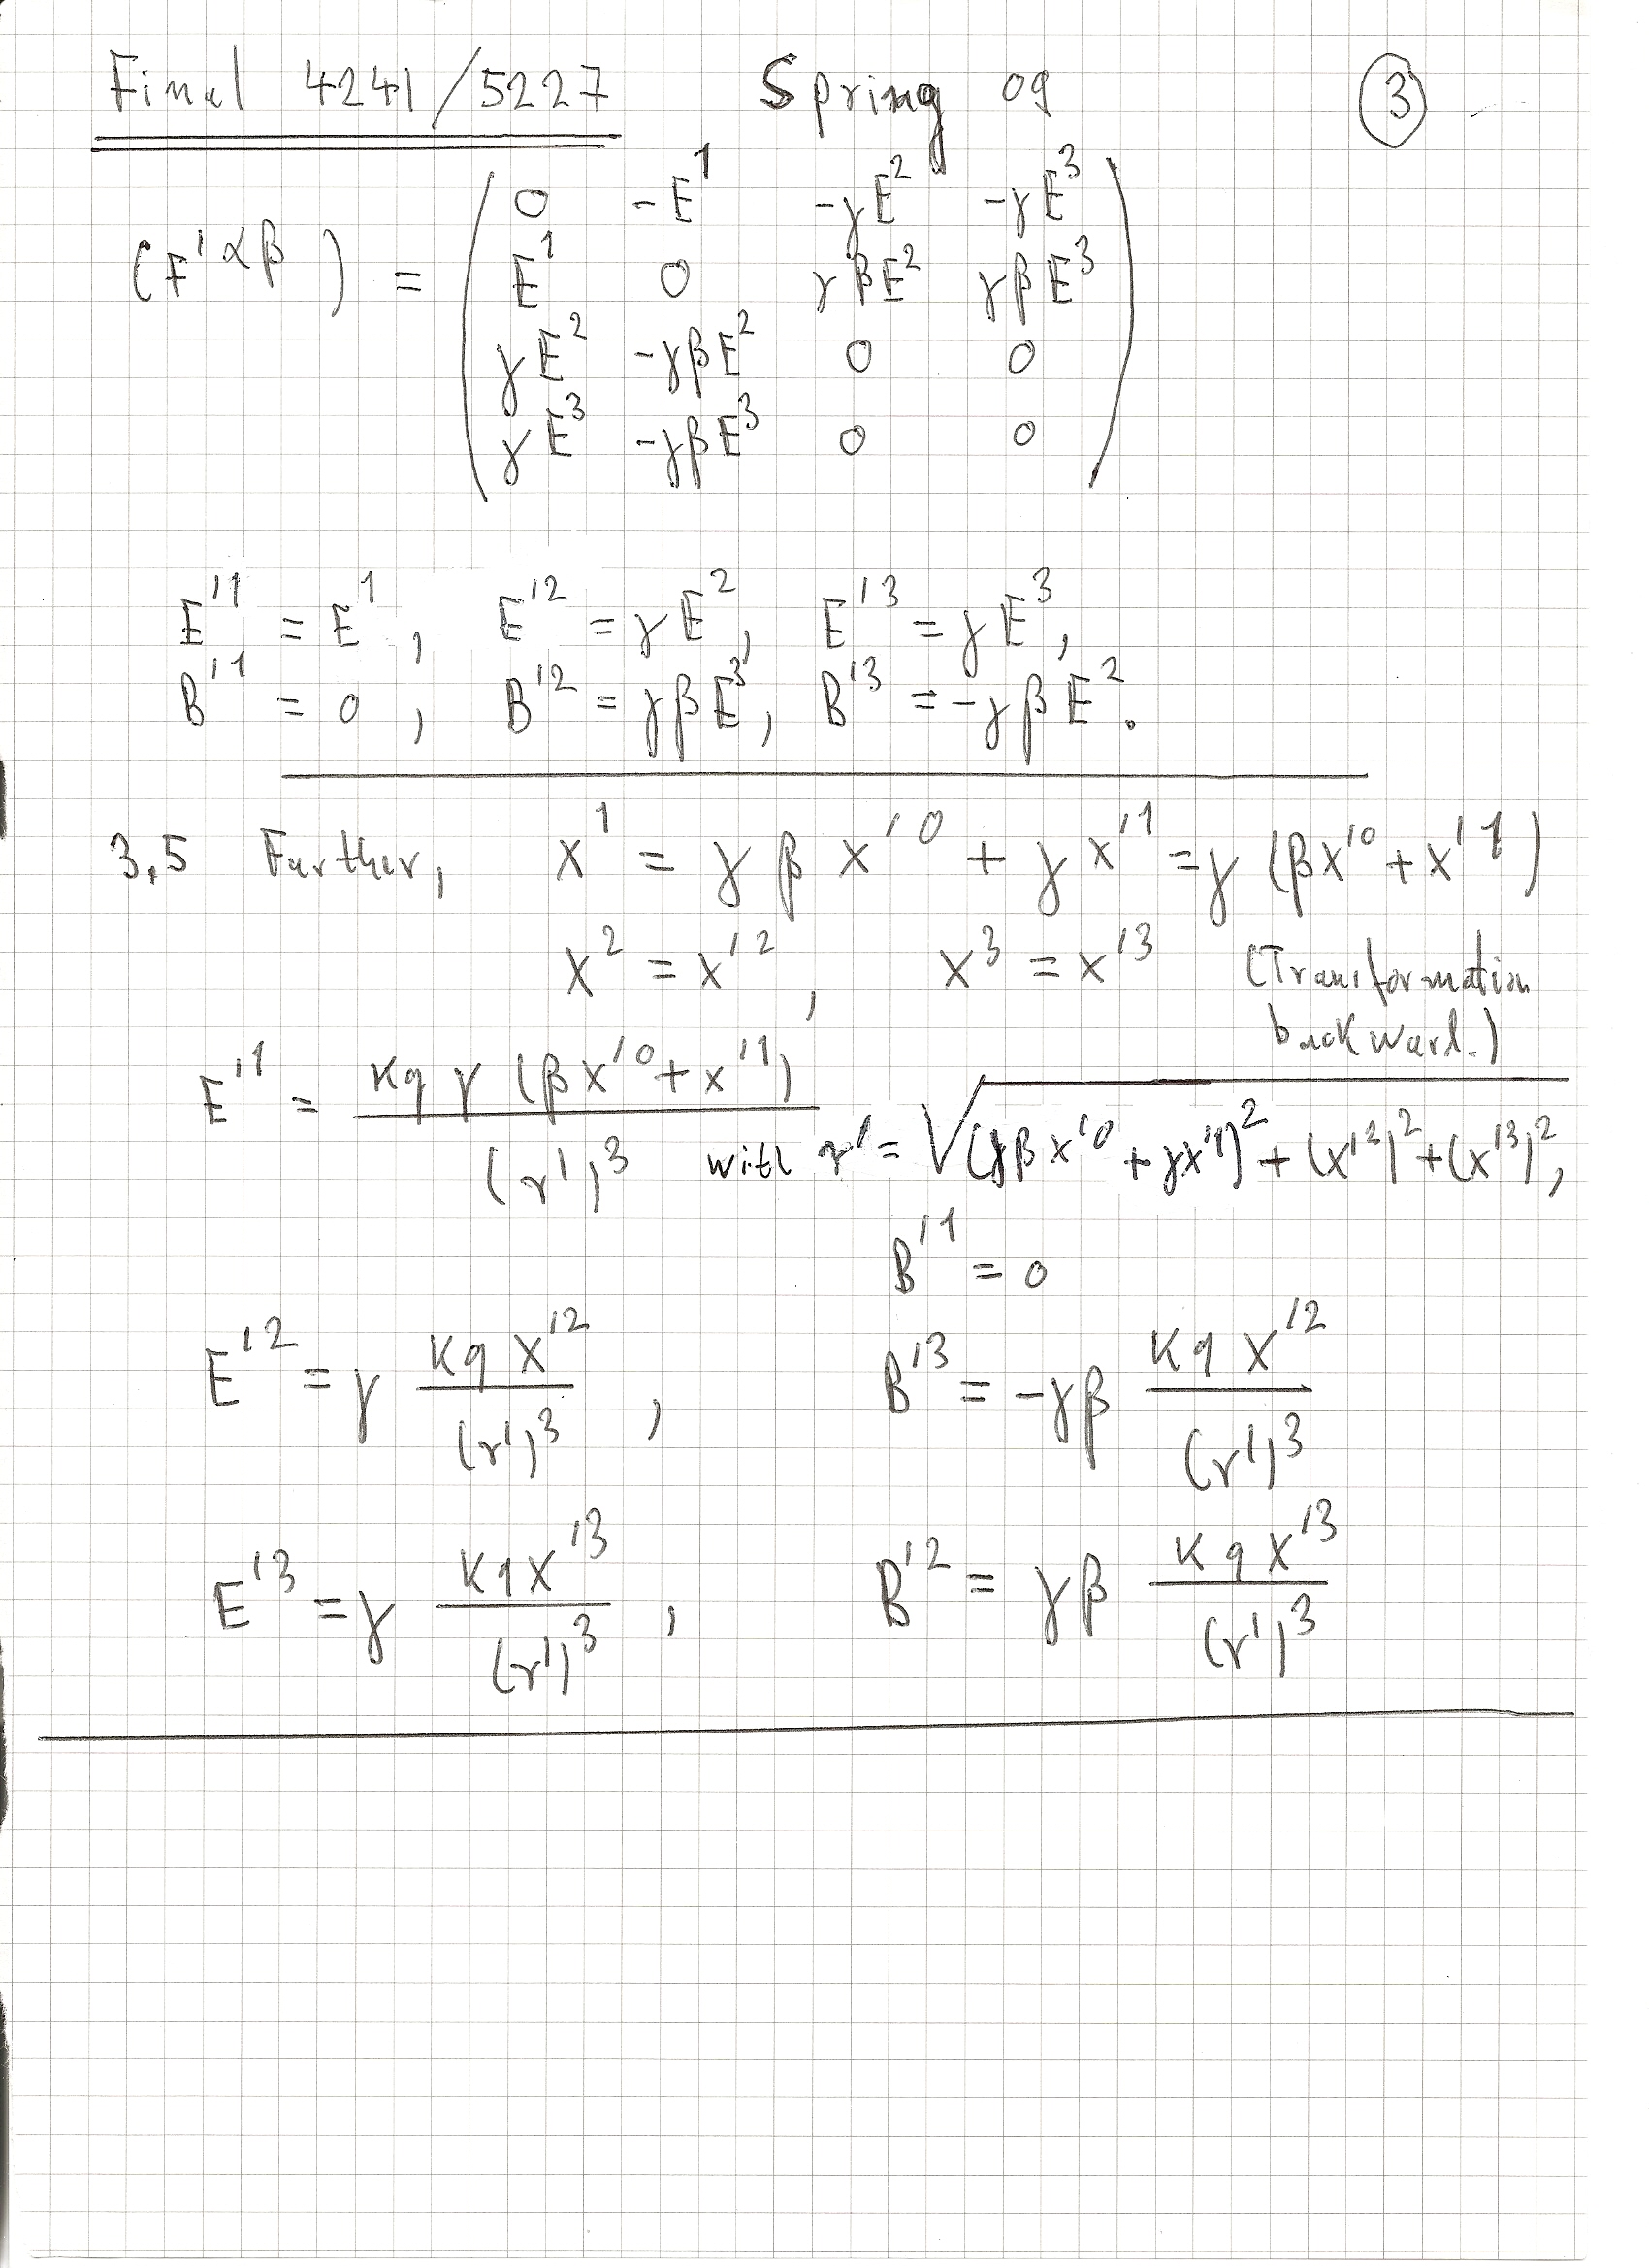 Final 4241/5227 Spring 09 ③
(F'^{αβ}) = ( 0 -E^1 -γE^2 -γE^3
E^1 0 γβE^2 γβE^3
γE^2 -γβE^2 0 0
γE^3 -γβE^3 0 0 )
E'^1 = E^1, E'^2 = γE^2, E'^3 = γE^3,
B'^1 = 0, B'^2 = γβE^3, B'^3 = -γβE^2.
3.5 Further, x^1 = γβx'^0 + γx'^1 = γ(βx'^0 + x'^1)
x^2 = x'^2, x^3 = x'^3 (Transformation
backward.)
E'^1 = Kqγ(βx'^0 + x'^1) / (r')^3 with r' = √((γβx'^0 + γx'^1)^2 + (x'^2)^2 + (x'^3)^2),
B'^1 = 0
E'^2 = γ Kqx'^2 / (r')^3, B'^3 = -γβ Kqx'^2 / (r')^3
E'^3 = γ Kqx'^3 / (r')^3, B'^2 = γβ Kqx'^3 / (r')^3